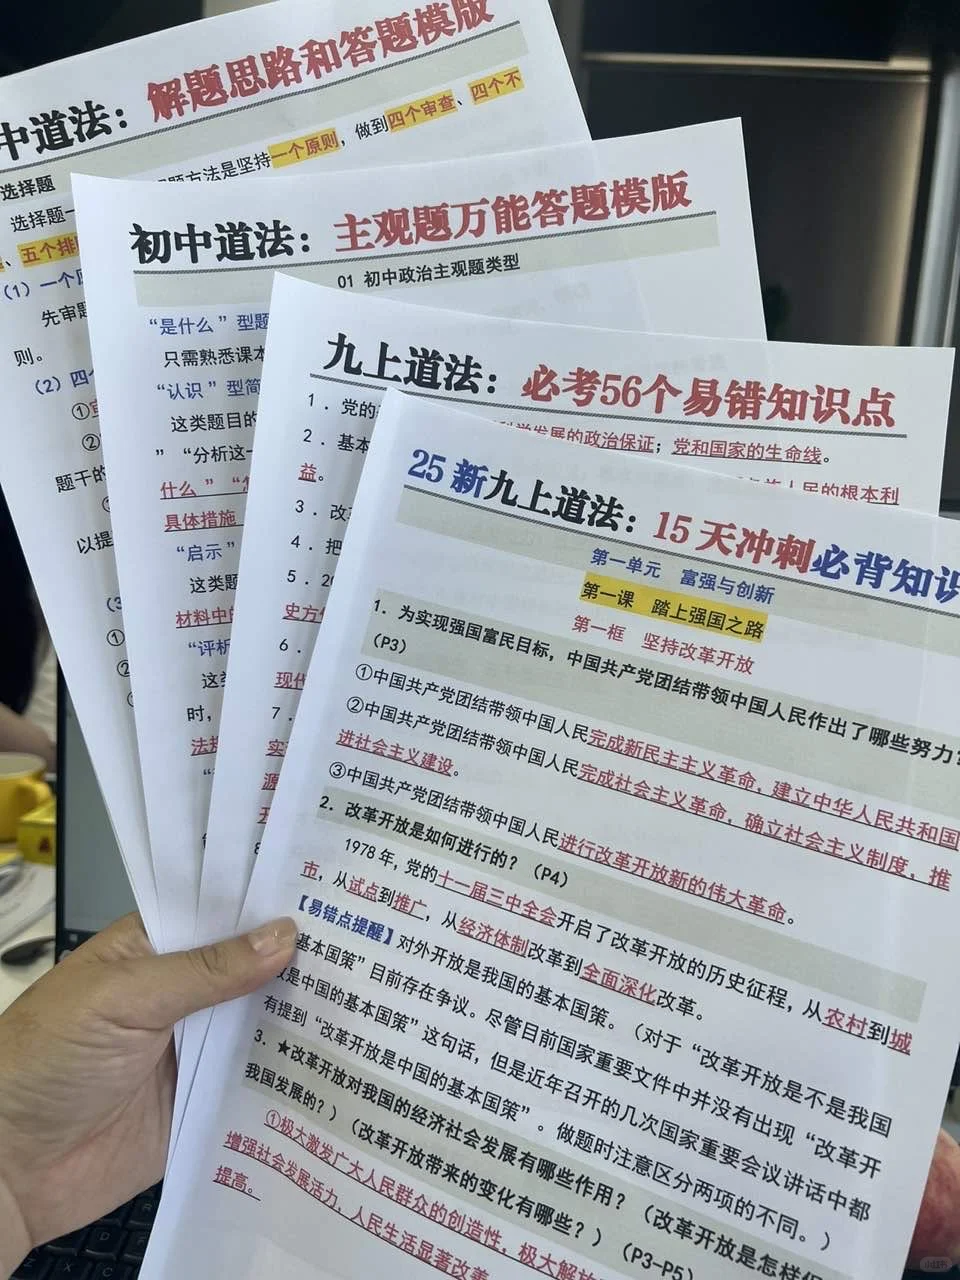 中道法：解题思路和答题模版
选择题
题方法是坚持一个原则，做到四个审查、四个不
选择题一
、五个排
（1）一个原
先审题
则。
（2）四个
①
②
题干的
以提
（3
①
②
初中道法：主观题万能答题模版
01 初中政治主观题类型
“是什么”型题
只需熟悉课本
“认识”型简
这类题目的
”“分析这一
什么”“怎
具体措施
“启示”
这类题
材料中的
“评析
这类
时，
法持
九上道法：必考56个易错知识点
1．党的基
科学发展的政治保证；党和国家的生命线。
2．基本
人民的根本利
益。
3．改
4．把
5．20
史方位
6．
现代
7．
实
源
开
8
25 新九上道法：15 天冲刺必背知识
第一单元 富强与创新
第一课 踏上强国之路
第一框 坚持改革开放
1．为实现强国富民目标，中国共产党团结带领中国人民作出了哪些努力？
（P3）
①中国共产党团结带领中国人民完成新民主主义革命，建立中华人民共和国
②中国共产党团结带领中国人民完成社会主义革命，确立社会主义制度，推
进社会主义建设。
③中国共产党团结带领中国人民进行改革开放新的伟大革命。
2．改革开放是如何进行的？（P4）
1978 年，党的十一届三中全会开启了改革开放的历史征程，从农村到城
市，从试点到推广，从经济体制改革到全面深化改革。
【易错点提醒】对外开放是我国的基本国策。（对于“改革开放是不是我国
基本国策”目前存在争议。尽管目前国家重要文件中并没有出现“改革开
放是中国的基本国策”这句话，但是近年召开的几次国家重要会议讲话中都
有提到“改革开放是中国的基本国策”。做题时注意区分两项的不同。）
3．★改革开放对我国的经济社会发展有哪些作用？（改革开放是怎样促
我国发展的？）（改革开放带来的变化有哪些？）（P3-P5）
①极大激发广大人民群众的创造性，极大解放
增强社会发展活力，人民生活显著改善
提高。